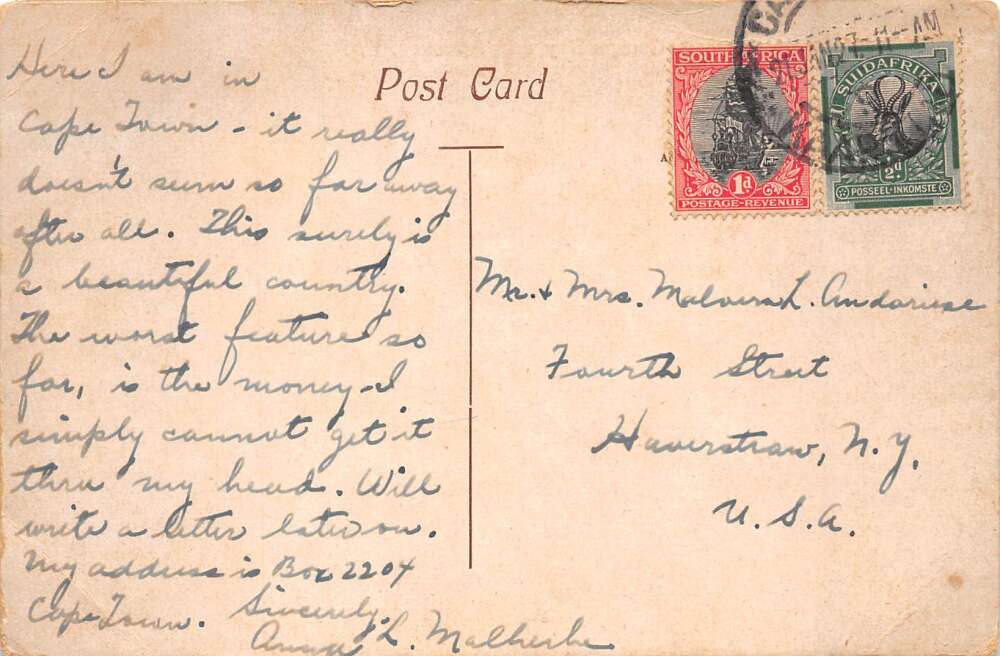 Here I am in
Cape Town - it really
doesn't seem so far away
after all. This surely is
a beautiful country.
The worst feature so
far, is the money - I
simply cannot get it
thru my head. Will
write a letter later on.
My address is Box 2204
Cape Town. Sincerely,
Anna L. Malherbe
Post Card
SOUTH AFRICA
1d
POSTAGE-REVENUE
SUIDAFRIKA
½d
POSSEEL-INKOMSTE
CA
JAN 27-11-AM
Mr. & Mrs. L.
Fourth Street
Haverstraw, N.Y.
U.S.A.